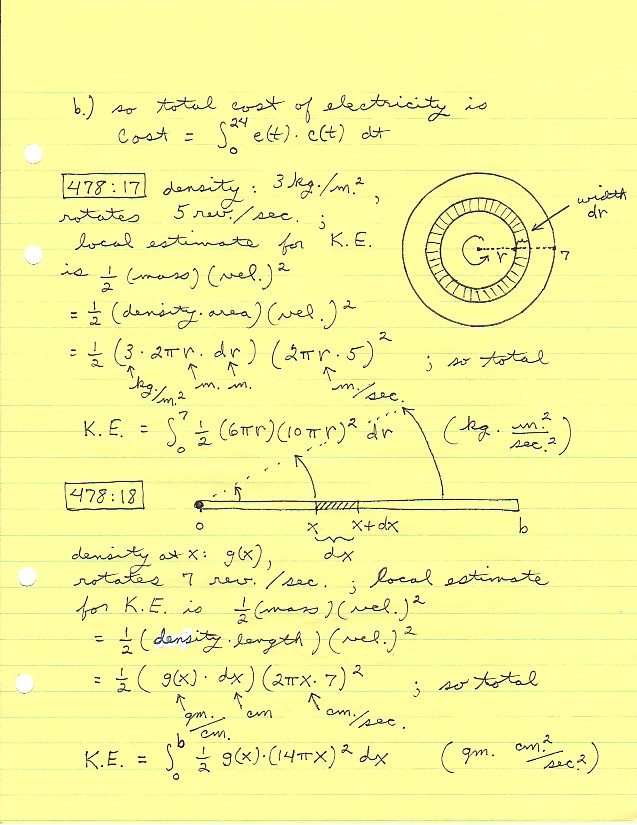 b.) so total cost of electricity is
Cost = ∫₀²⁴ e(t)·c(t) dt
478:17 density: 3 kg./m.²,
rotates 5 rev./sec. ;
local estimate for K.E.
is 1/2 (mass)(vel.)²
= 1/2 (density·area)(vel.)²
= 1/2 (3·2πr·dr)(2πr·5)² ; so total
kg./m.² m. m. m./sec.
K.E. = ∫₀⁷ 1/2 (6πr)(10πr)² dr (kg. m.²/sec.²)
width
dr
r 7
478:18
0 x x+dx b
dx
density at x: g(x),
rotates 7 rev./sec. ; local estimate
for K.E. is 1/2 (mass)(vel.)²
= 1/2 (density·length)(vel.)²
= 1/2 (g(x)·dx)(2πx·7)² ; so total
gm./cm. cm cm./sec.
K.E. = ∫₀ᵇ 1/2 g(x)·(14πx)² dx (gm. cm.²/sec.²)